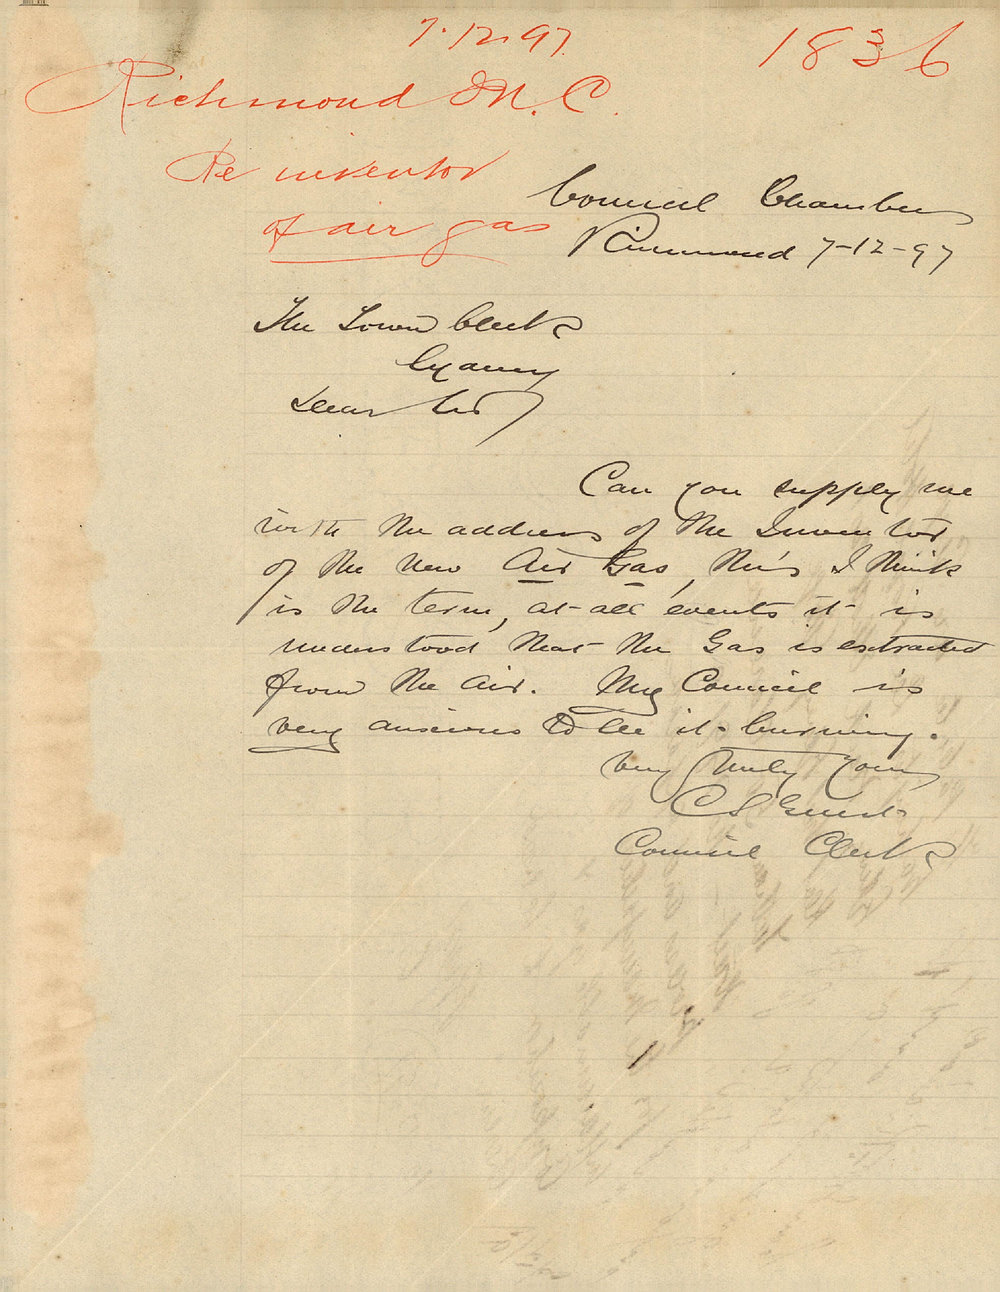 7.12.97.
1836
Richmond M. C.
Re inventor
of air gas
Council Chambers
Richmond 7-12-97
The Town Clerk
Dear Sir
Can you supply me
with the address of the Inventor
of the new Air Gas, this I think
is the term, at all events it is
understood that the Gas is extracted
from the air. My Council is
very anxious to see it burning.
Very truly yours
Council Clerk